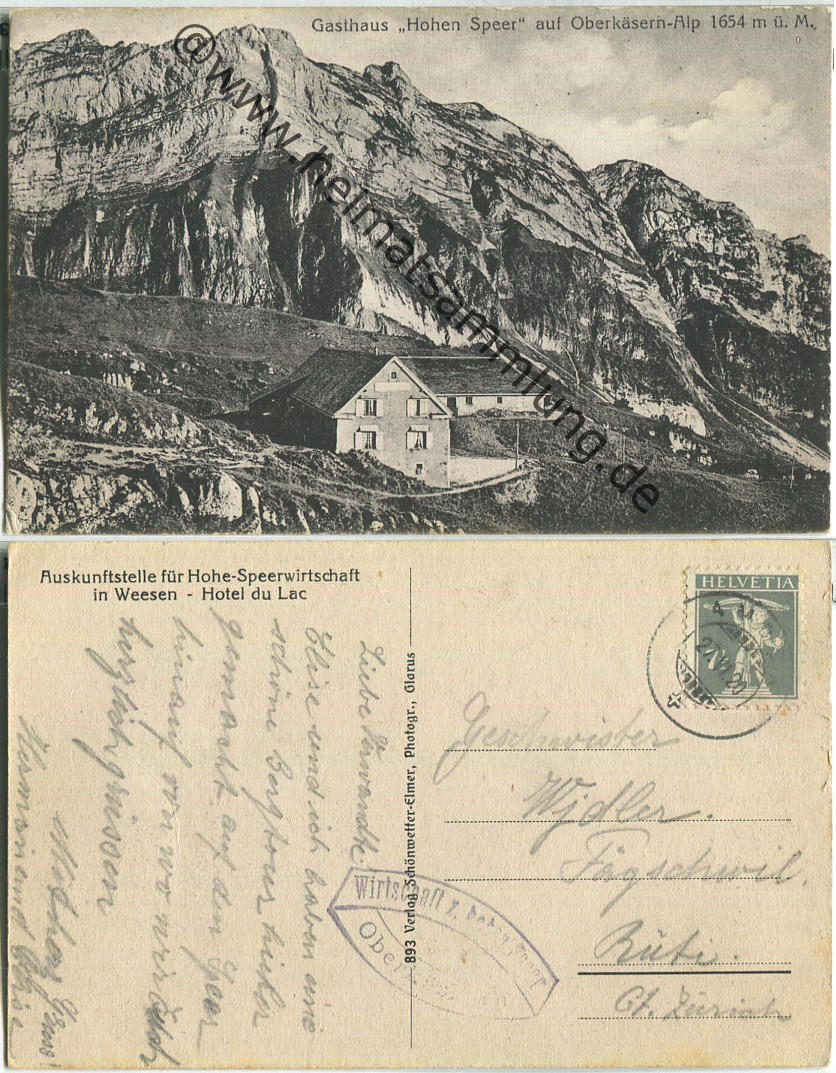 Gasthaus „Hohen Speer“ auf Oberkäsern-Alp 1654 m ü. M.
@www.heimatsammlung.de
Auskunftstelle für Hohe-Speerwirtschaft
in Weesen - Hotel du Lac
Liebe Verwandte
Elise und ich haben eine
schöne Bergtour hinter
gemacht auf den Speer
hinauf von wo wir Euch
herzlich grüssen
Hermann und Elise
893 Verlag Schönwetter-Elmer, Photogr., Glarus
HELVETIA
Geschwister
Widler.
Fägschwil.
Rüti.
Ct. Zürich
Wirtschaft z. hohen Speer